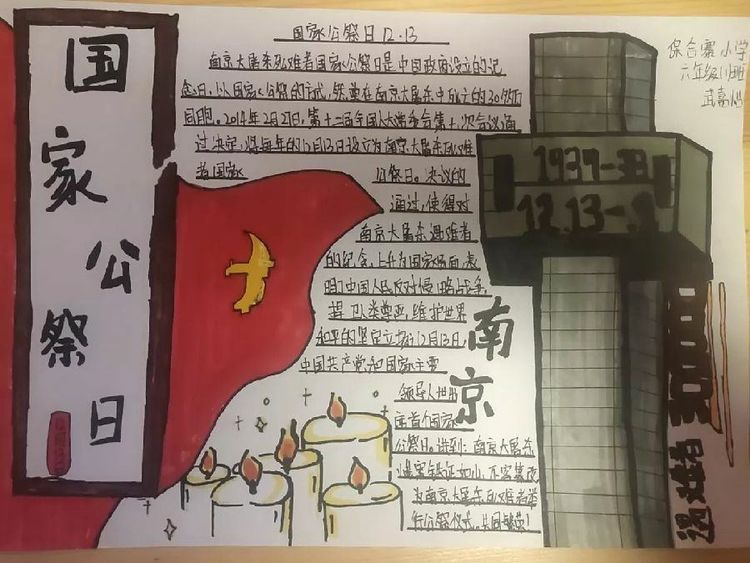 国家公祭日
国家公祭日12.13
南京大屠杀死难者国家公祭日是中国政府设立的纪
念日,以国家公祭的方式,祭奠在南京大屠杀中死亡的30余万
同胞。2014年2月27日,第十二届全国人大常委会第七次会议通
过决定,将每年的12月13日设立为南京大屠杀死难
者国家
公祭日。决议的
通过,使得对
南京大屠杀遇难者
的纪念,上升为国家层面,表
明中国人民反对侵略战争,
捍卫人类尊严,维护世界
和平的坚定立场12月13日,
中国共产党和国家主要
领导人出席
首个国家
公祭日。讲到:南京大屠杀
铁证如山,不容篡改
为南京大屠杀死难者举
行公祭仪式。共同繁荣!
南京
保合寨小学
六年级(1)班
武嘉
1937-38
12.13-
遇难者
300000